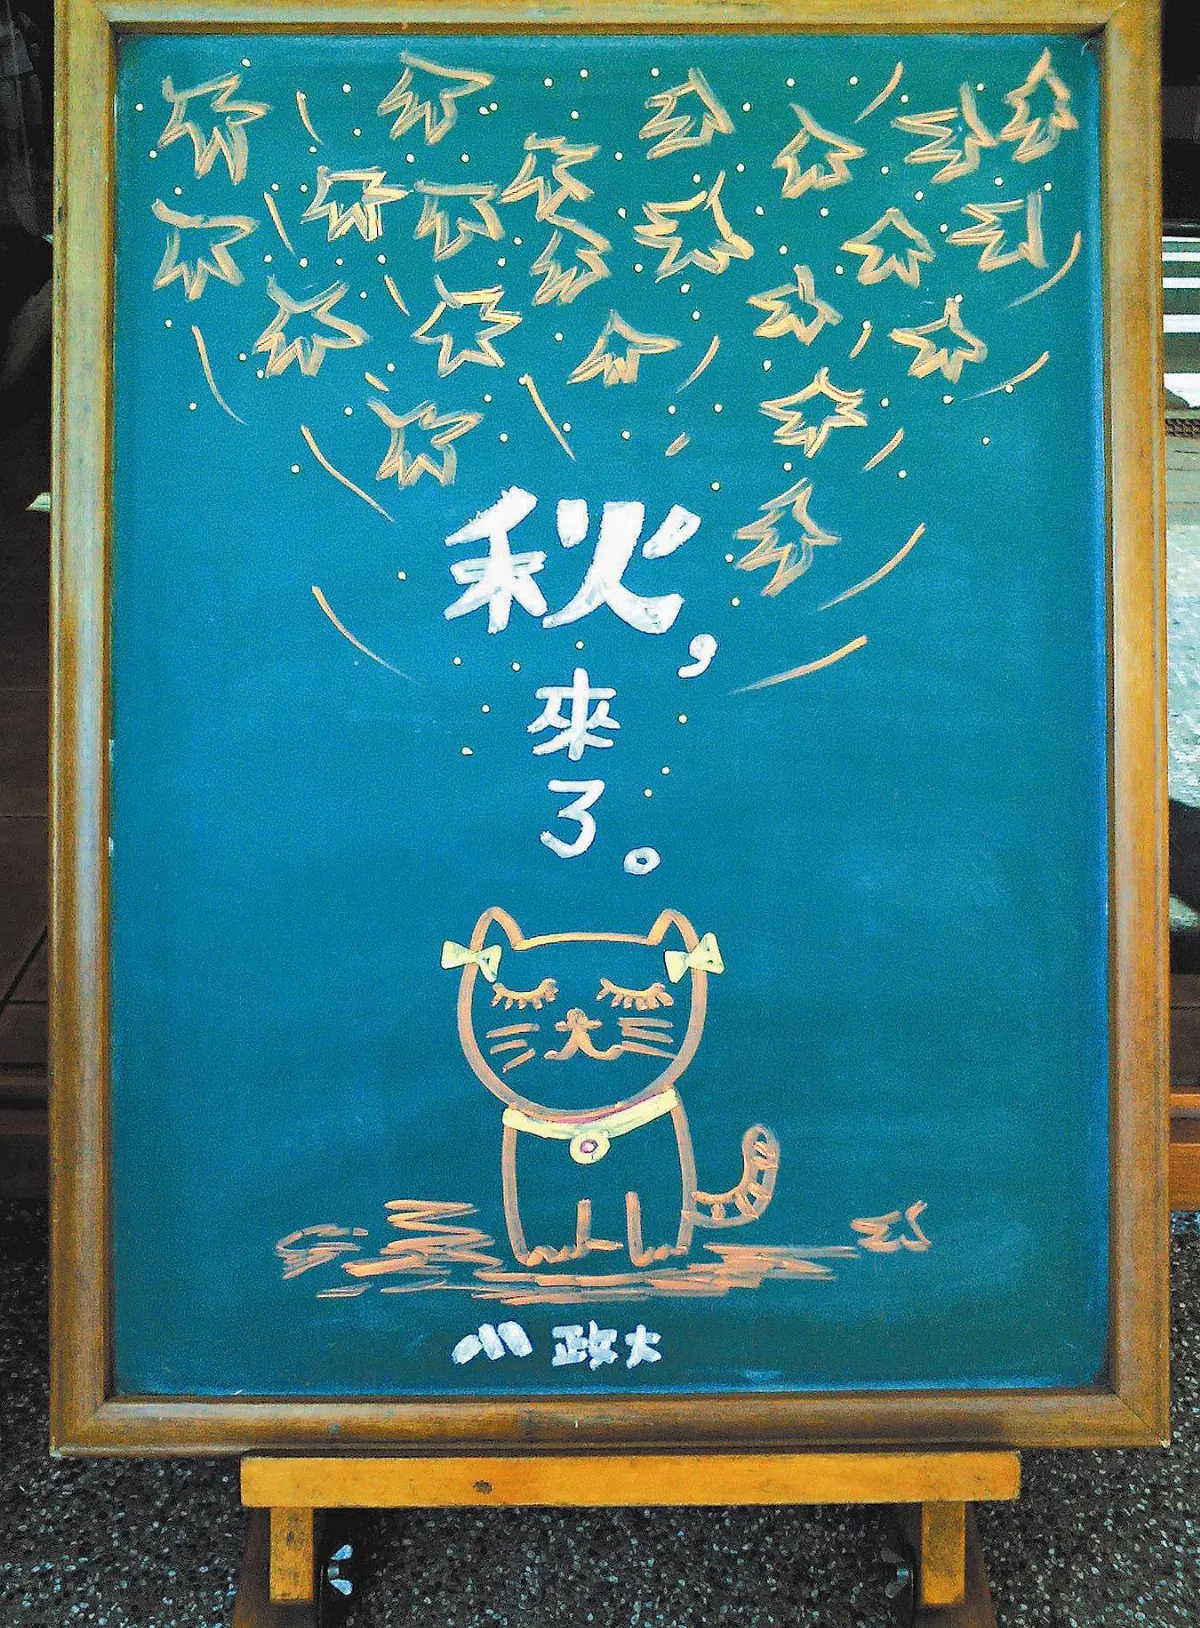 秋，
來
了。
政大